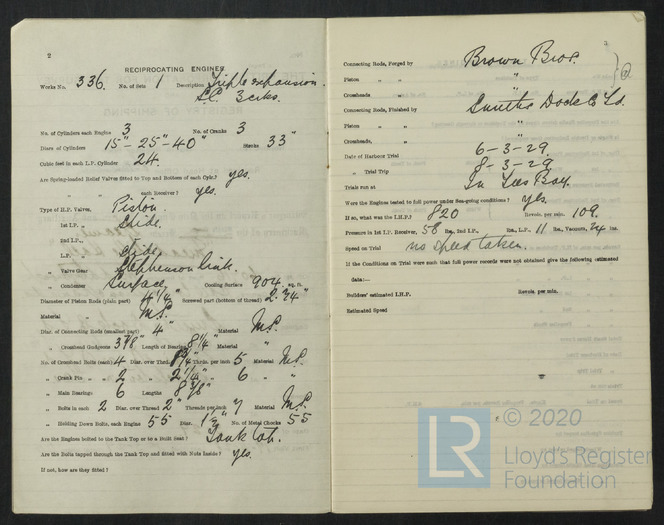 2
RECIPROCATING ENGINES.
Works No. 336. No. of Sets 1 Description Triple expansion.
S.C. 3 cks.
No. of Cylinders each Engine 3 No. of Cranks 3
Diars. of Cylinders 15"- 25"- 40" Stroke 33"
Cubic feet in each L.P. Cylinder 24.
Are Spring-loaded Relief Valves fitted to Top and Bottom of each Cylr.? yes.
" " each Receiver? yes.
Type of H.P. Valves, Piston.
" 1st I.P. " Slide.
" 2nd I.P. "
" L.P. " slide
" Valve Gear Stephenson Link.
" Condenser Surface Cooling Surface 904 sq. ft.
Diameter of Piston Rods (plain part) 4 1/4" Screwed part (bottom of thread)
Material " M.S.
Diar. of Connecting Rods (smallest part) 4" Material M.S.
" Crosshead Gudgeons 3 7/8" Length of Bearing 8 1/4" Material "
No. of Crosshead Bolts (each) 4 Diar. over Thrd. Thrds. per inch 5 Material M.S.
" Crank Pin " " 2 " 2 1/4" " 6 " "
" Main Bearings 6 Lengths 8 3/8"
" Bolts in each 2 Diar. over Thread 2" Threads per inch 7 Material M.S.
" Holding Down Bolts, each Engine 55 Diar. No. of Metal Chocks 55
Are the Engines bolted to the Tank Top or to a Built Seat? Tank top.
Are the Bolts tapped through the Tank Top and fitted with Nuts Inside? yes.
If not, how are they fitted?
3
Connecting Rods, Forged by Brown Bros.
Piston " " "
Crossheads "
Connecting Rods, Finished by Smiths Dock Co Ld.
Piston " " "
Crossheads, " "
Date of Harbour Trial 6-3-29.
" Trial Trip 8-3-29.
Trials run at In Tees Bay.
Were the Engines tested to full power under Sea-going conditions? yes.
If so, what was the I.H.P.? 820 Revols. per min. 109.
Pressure in 1st I.P. Receiver, 58 lbs., 2nd I.P. lbs., L.P. 11 lbs., Vacuum, 24 ins.
Speed on Trial no speed taken.
If the Conditions on Trial were such that full power records were not obtained give the following estimated
data:—
Builders' estimated I.H.P. Revols. per min.
Estimated Speed
© 2020
LR
Lloyd's Register
Foundation